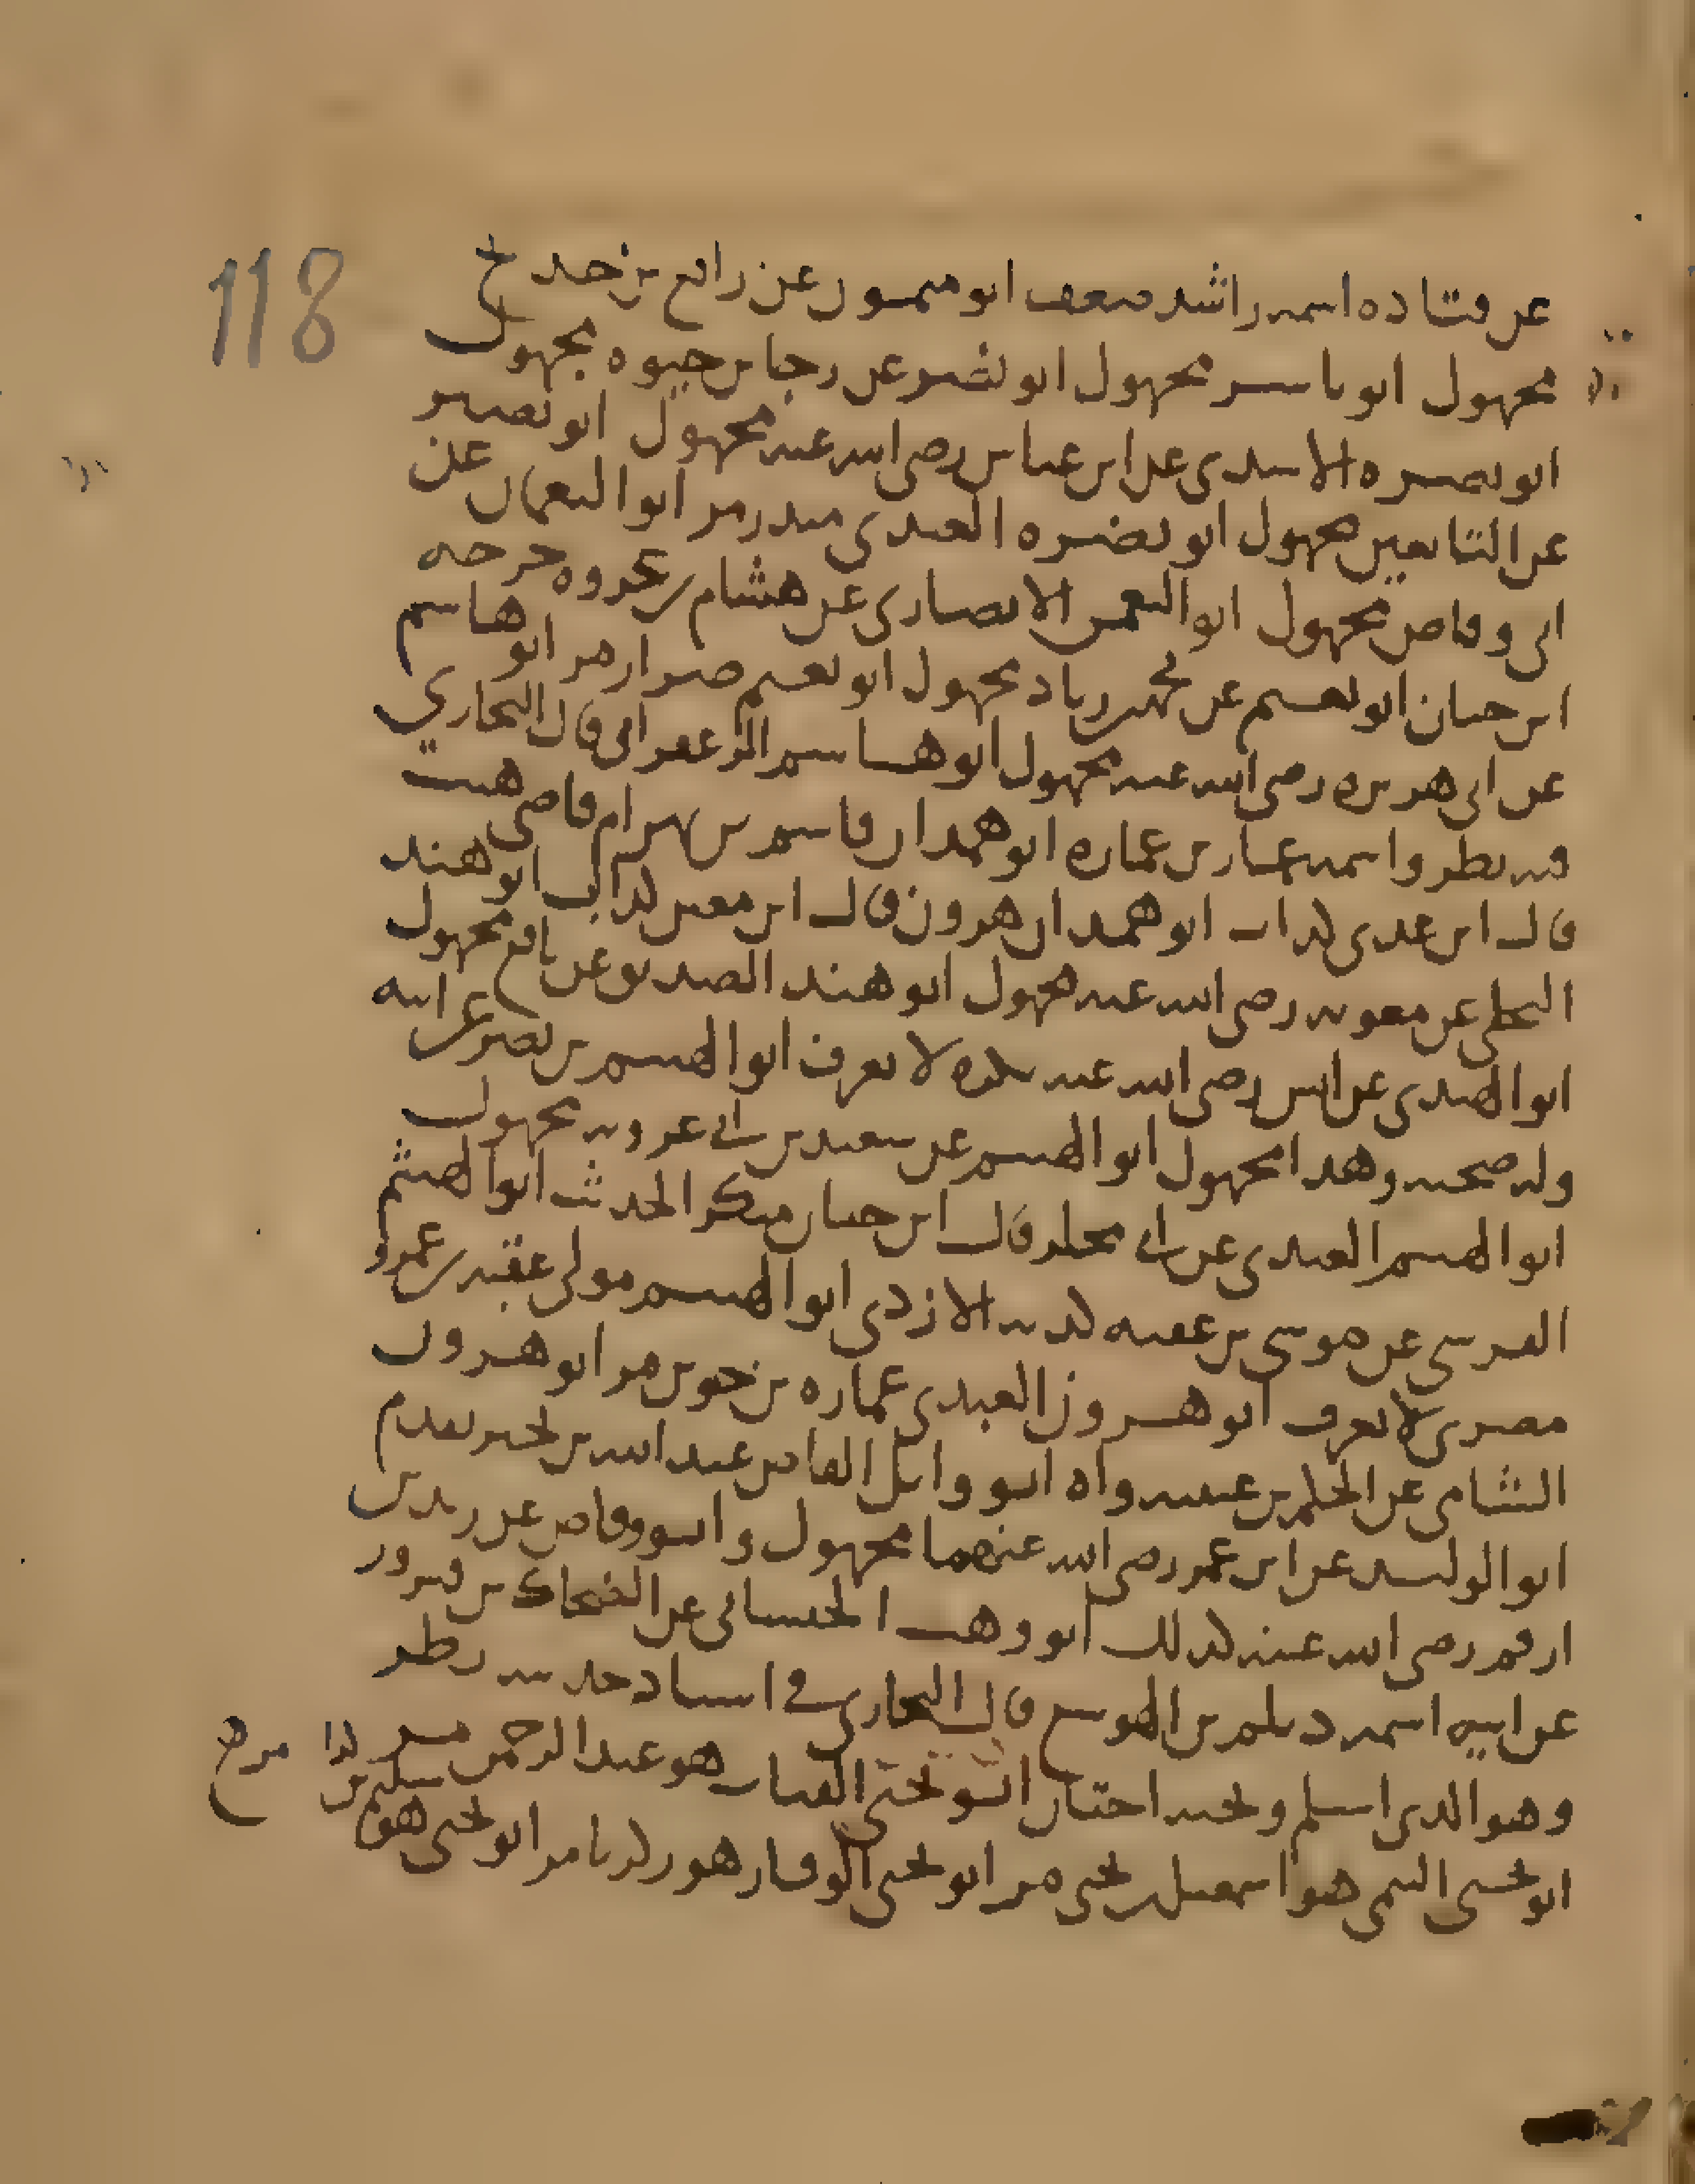 118
عن قتاده اسمه راشد ضعف ابو ميمون عن رافع بن خديج
مجهول ابو ياسر مجهول ابو نضر عن رجا بن حيوه مجهول
ابو نصيره الاسدي عن ابن عباس رضي الله عنه مجهول ابو نصير
عن التابعين مجهول ابو نضره العبدي منذر مر ابو النعمان عن
ابي وقاص مجهول ابو النعمن الانصاري عن هشام بن عروه جرحه
ابن حبان ابو نعيم عن محمد بن زياد مجهول ابو نعيم ضرار مر ابو هاشم
عن ابي هريره رضي الله عنه مجهول ابو هاشم الزعفراني قال البخاري
فيه نظر واسمه عمار بن عماره ابو همدان قاسم بن بهرام قاضي هيت
قال ابن عدي كذاب ابو همدان هرون قال ابن معين كذاب ابو هند
البجلي عن معويه رضي الله عنه مجهول ابو هند الصديق عن نافع مجهول
ابو الهندي عن انس رضي الله عنه نكره لا يعرف ابو الهيثم بن نصر عن ابيه
وله صحبه وهذا مجهول ابو الهيثم عن سعيد بن ابي عروبه مجهول
ابو الهيثم العبدي عن ابي مجلز قال ابن حبان منكر الحديث ابو الهيثم
القرشي عن موسى بن عقبه كذبه الازدي ابو الهيثم مولى عقبه بن عمرو
مصري لا يعرف ابو هرون العبدي عماره بن جوين مر ابو هرون
الشامي عن الحكم بن عتيبه واه ابو وائل القاص عبد الله بن بحير تقدم
ابو الوليد عن ابن عمر رضي الله عنهما مجهول وابو وقاص عن زيد بن
ارقم رضي الله عنه كذلك ابو وهب الجيشاني عن الضحاك بن فيروز
عن ابيه اسمه ديلم بن الهوسع قال البخاري في اسناد حديثه نظر
وهو الذي اسلم وتحته اختان ابو يحيى القتات هو عبد الرحمن مر
ابو يحيى التيمي هو اسمعيل بن يحيى مر ابو يحيى الوقار هو زكريا مر ابو يحيى هو